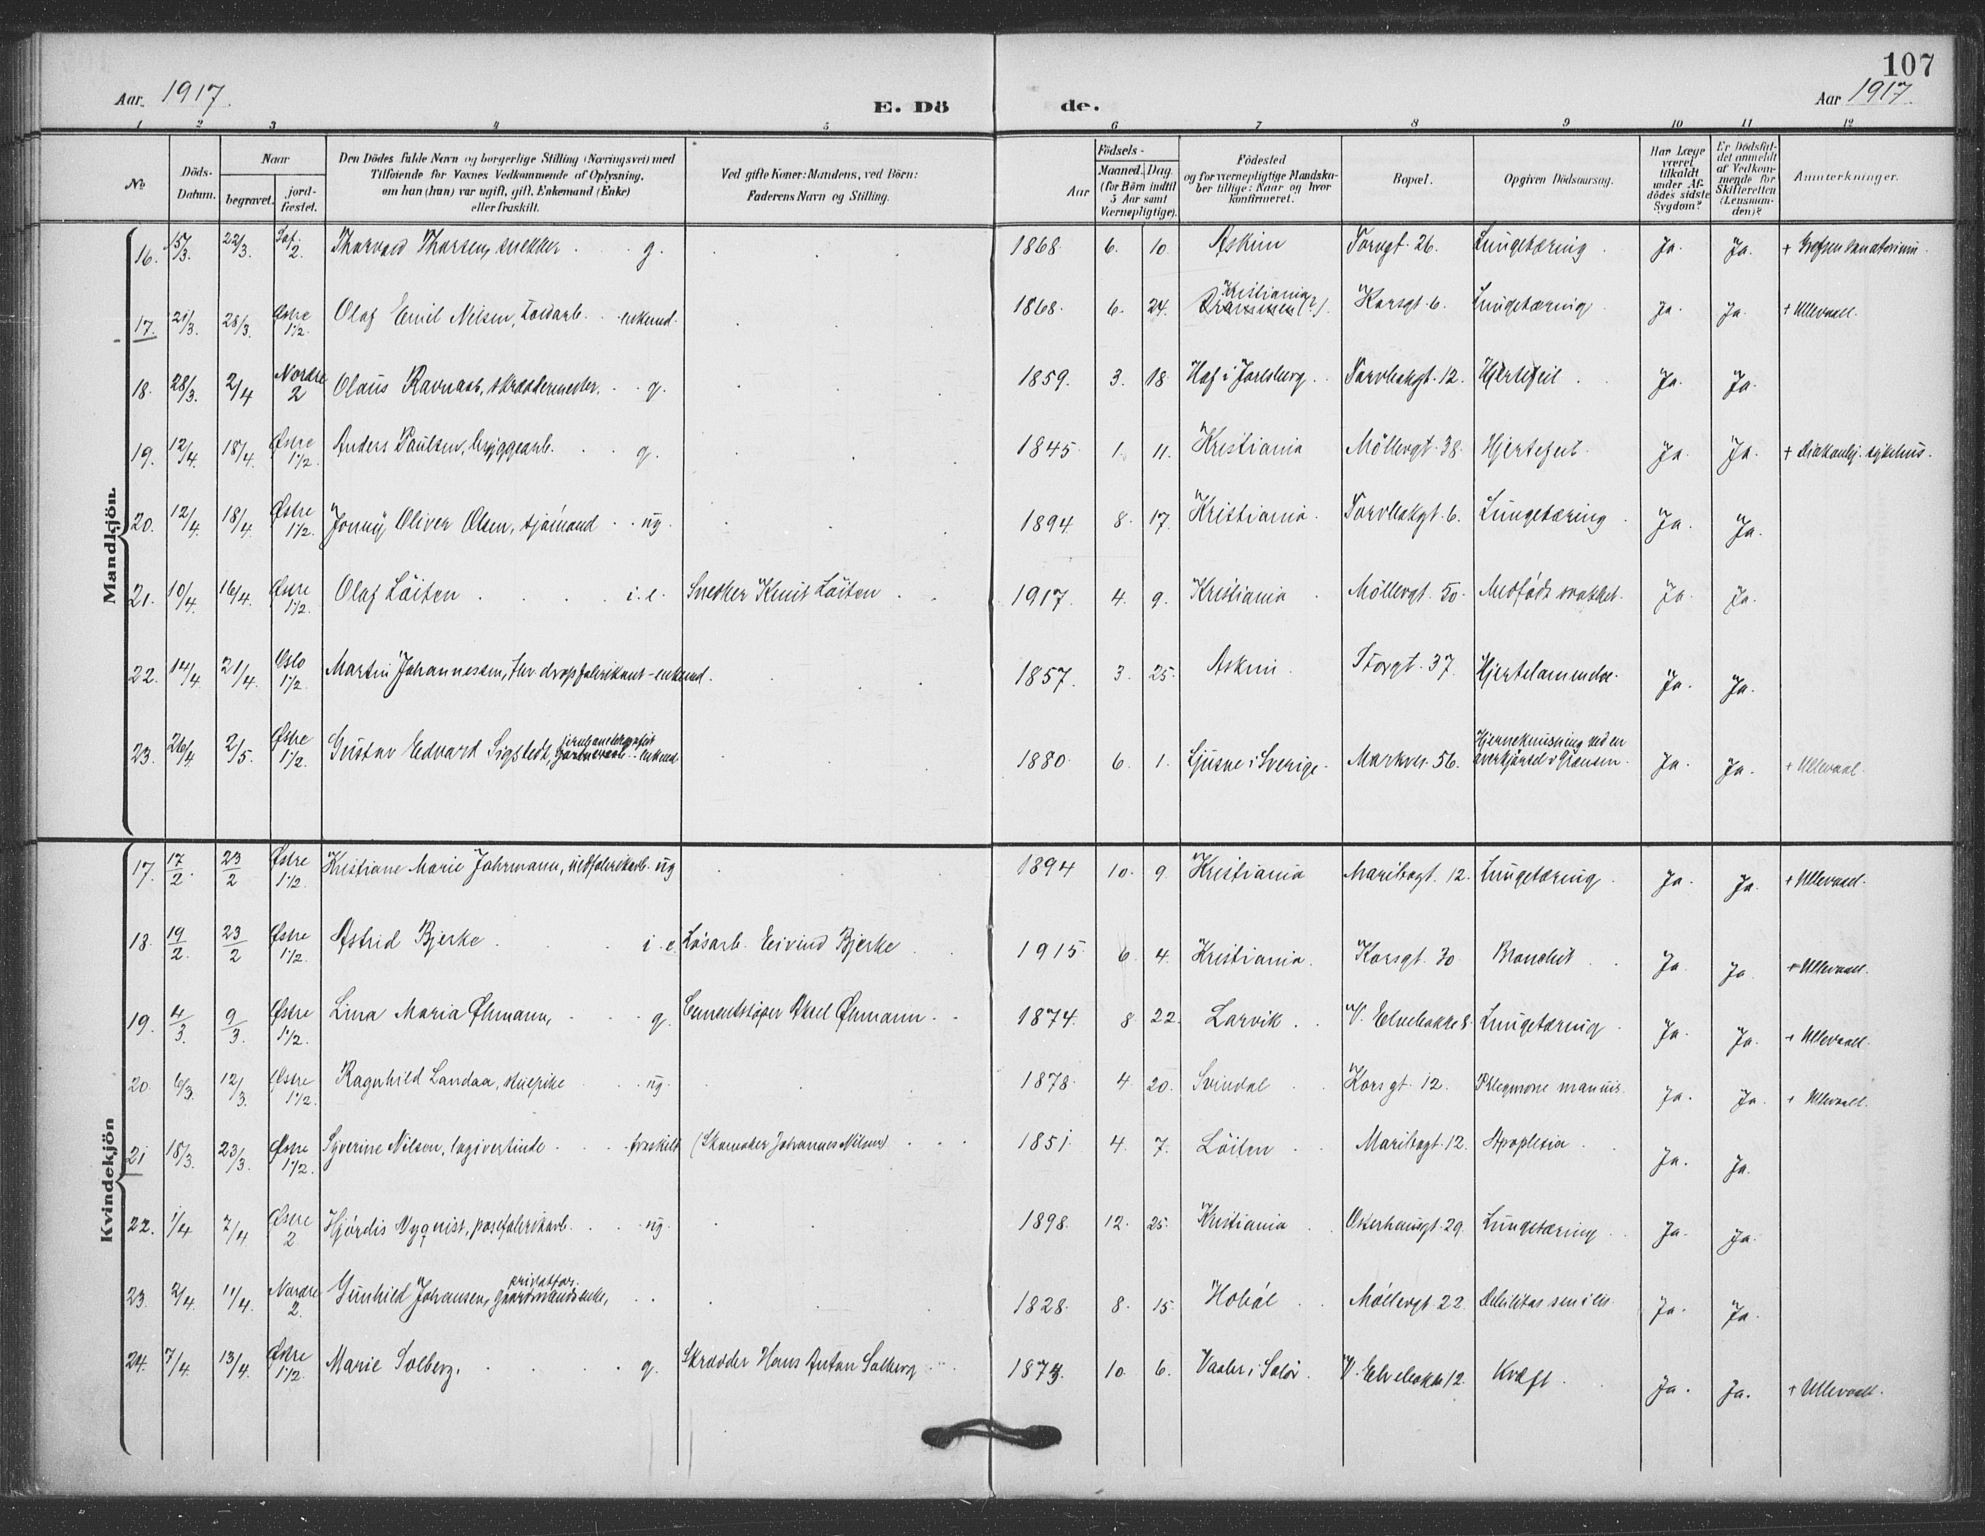 107
Aar. 1917. E. Dö de. Aar 1917.
1 2 3 4 5 6 7 8 9 10 11 12
No
Döds-Datum.
Naar
begravet.
jord-fæstet.
Den Dödes fulde Navn og borgerlige Stilling (Næringsvei) med
Tilföiende for Voxnes Vedkommende af Oplysning,
om han (hun) var ugift, gift, Enkemand (Enke)
eller fraskilt.
Ved gifte Koner: Mandens, ved Börn:
Faderens Navn og Stilling.
Födsels-
Aar
Maaned. Dag.
(for Börn indtil
5 Aar samt
Værnepligtige).
Födested
og for værnepligtige Mandska-
ber tillige: Naar og hvor
konfirmeret.
Bopæl.
Opgiven Dödsaarsag.
Har Læge
været
tilkaldt
under Af-
dödes sidste
Sygdom?
Er Dödsfal-
det anmeldt
af Vedkom-
mende for
Skifteretten
(Lensman-
den)?
Anmærkninger.
Mandkjön.
16. 15/3. 22/3. 2. Thorvald Thorsen, snekker g. 1868 6. 10. Askim Torvgt. 26. Lungetæring Ja. Ja. + Grefsen sanatorium.
17. 21/3. 28/3. Østre 1½. Olaf Emil Nilsen, enkemd. 1868. 6. 24. Kristiania Korsgt. 6. Lungetæring Ja. Ja. + Ullevaal.
18. 28/3. 2/4 Nordre 2 Olaus Ravnaas, skræddermester. g. 1859. 3. 18. Hof i Jarlsberg. Torvbakgt. 12. Hjertefeil. Ja. Ja.
19. 12/4. 18/4. Østre 1½. Anders Paulsen, bryggearb. g. 1845. 1. 11. Kristiania Möllergt. 38. Hjertefeil. Ja. Ja. + Diakonhj. sykehus.
20. 12/4. 18/4. Østre 1½. Jonny Oliver Olsen, sjömand ug. 1894 8. 17. Kristiania. Torvbakgt. 6. Lungetæring Ja. Ja.
21. 10/4. 16/4. Østre 1½. Olaf Löiten i.e. Snekker Knut Löiten 1917. 4. 9. Kristiania Möllergt. 50. Medfödt svakhet. Ja. Ja.
22. 14/4. 21/4. Oslo 1½. Martin Johannessen, fhv. dropsfabrikant - enkemd. 1857. 3. 25. Askim. Storgt. 37. Hjertelammelse. Ja. Ja.
23. 26/4 2/5. Østre 1½. Gustav Edvard Sigstedt, enkemd. 1880 6. 1. Ljusne i Sverige. Markvei. 56. Hjerneknusning ved en overkjörsel i Grönsen. Ja. Ja. + Ullevaal.
Kvindekjön
17. 17/2. 23/2 Østre 1½. Kristiane Marie Johrmann, ug 1894 10. 9. Kristiania Maribogt. 12. Lungetæring. Ja. Ja. + Ullevaal.
18. 19/2. 23/2 Østre 1½. Astrid Bjerke. i.e. Lösarb. Eivind Bjerke 1915 6. 4. Kristiania. Korsgt. 30. Bronchit Ja. Ja. + Ullevaal.
19. 4/3. 9/3. Østre 1½. Lina Maria Øhmann, g. Cementstöper Axel Øhmann 1874. 8. 22. Larvik. V. Elvebakke 8. Lungetæring Ja. Ja. + Ullevaal.
20. 6/3. 12/3. Østre 1½. Ragnhild Landaa, ug. 1878. 4. 20. Svindal Korsgt. 12. Phlegmone manus. Ja. Ja. + Ullevaal.
21 18/3. 23/3. Østre 1½. Syverine Nilsen, logivertinde fraskilt (Skomaker Johannes Nilsen) 1851. 4. 7. Löiten Maribogt. 12. Apoplexia. Ja. Ja.
22. 1/4 7/4 Østre 2 Hjördis Nyqvist, posefabrikarb. ug. 1898. 12. 25. Kristiania Osterhausgt. 29. Lungetæring Ja. Ja.
23. 2/4. 11/4. Nordre 2. Gunhild Johansen, gaardmandsenke, 1828. 8. 15. Hoböl Möllergt. 22. Debilitas senilis. Ja. Ja.
24. 7/4. 13/4. Østre 1½. Marie Solberg. g. Skrædder Hans Anton Solberg 1873. 10. 6. Vaaler i Solör. V. Elvebakke 12. Kræft. Ja. Ja. + Ullevaal.